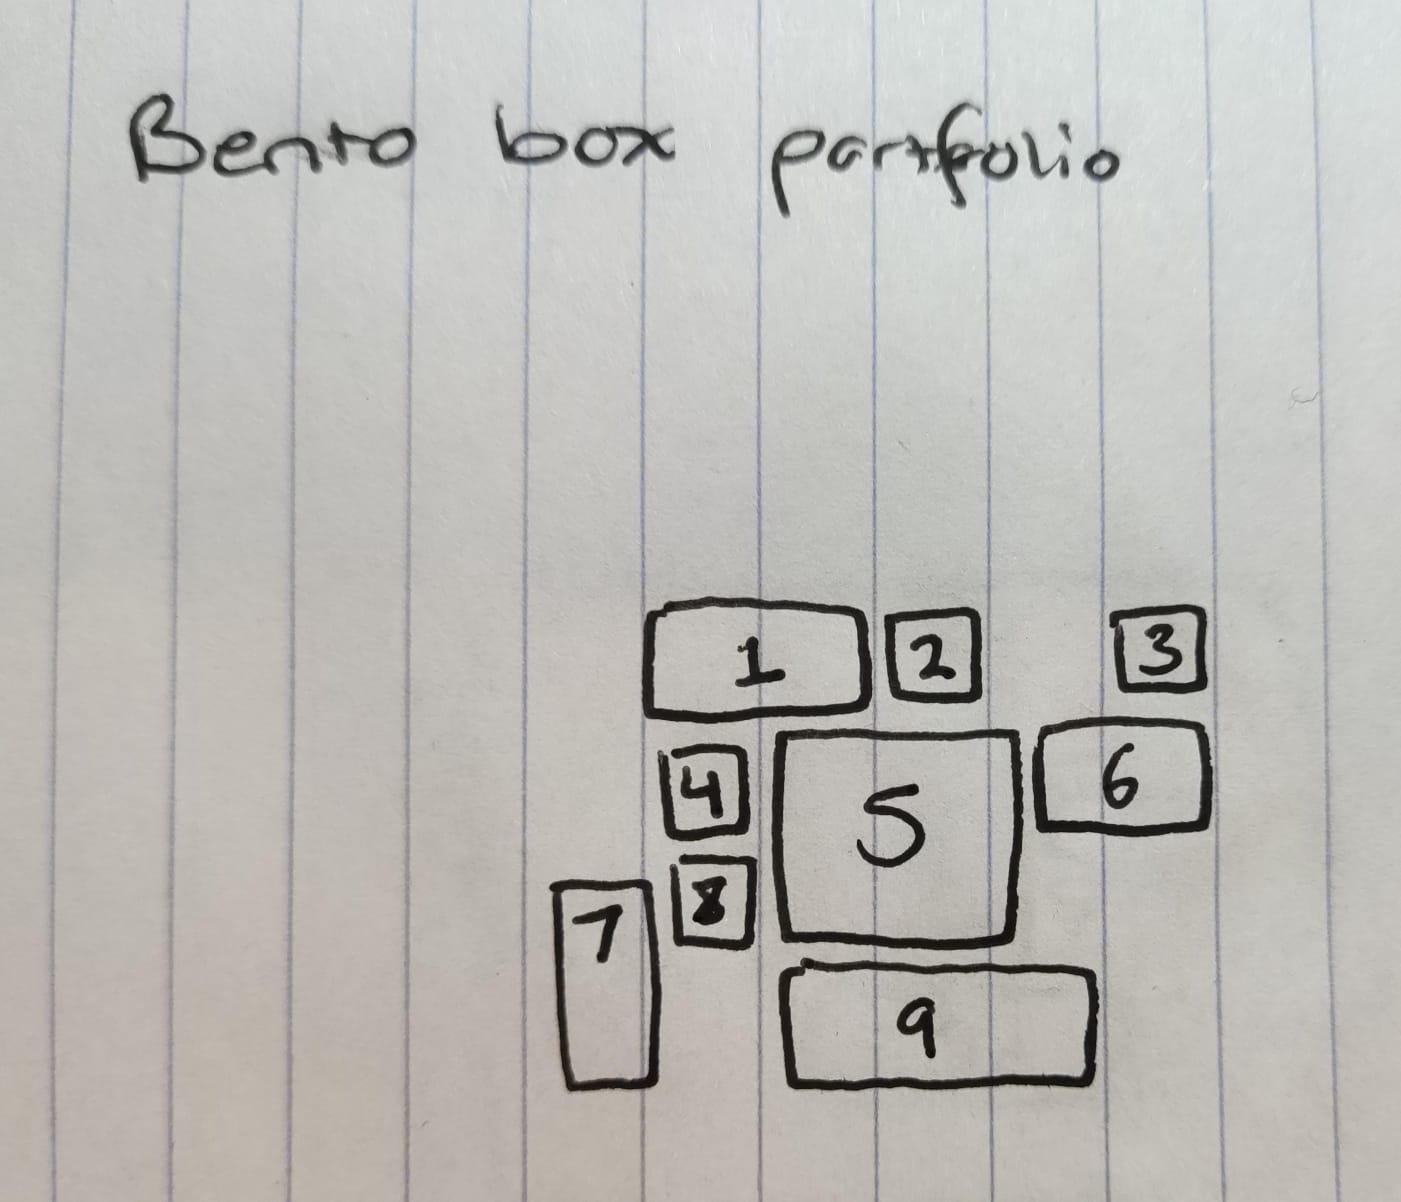 Bento box portfolio
1 2 3
4 5 6
7 8 9